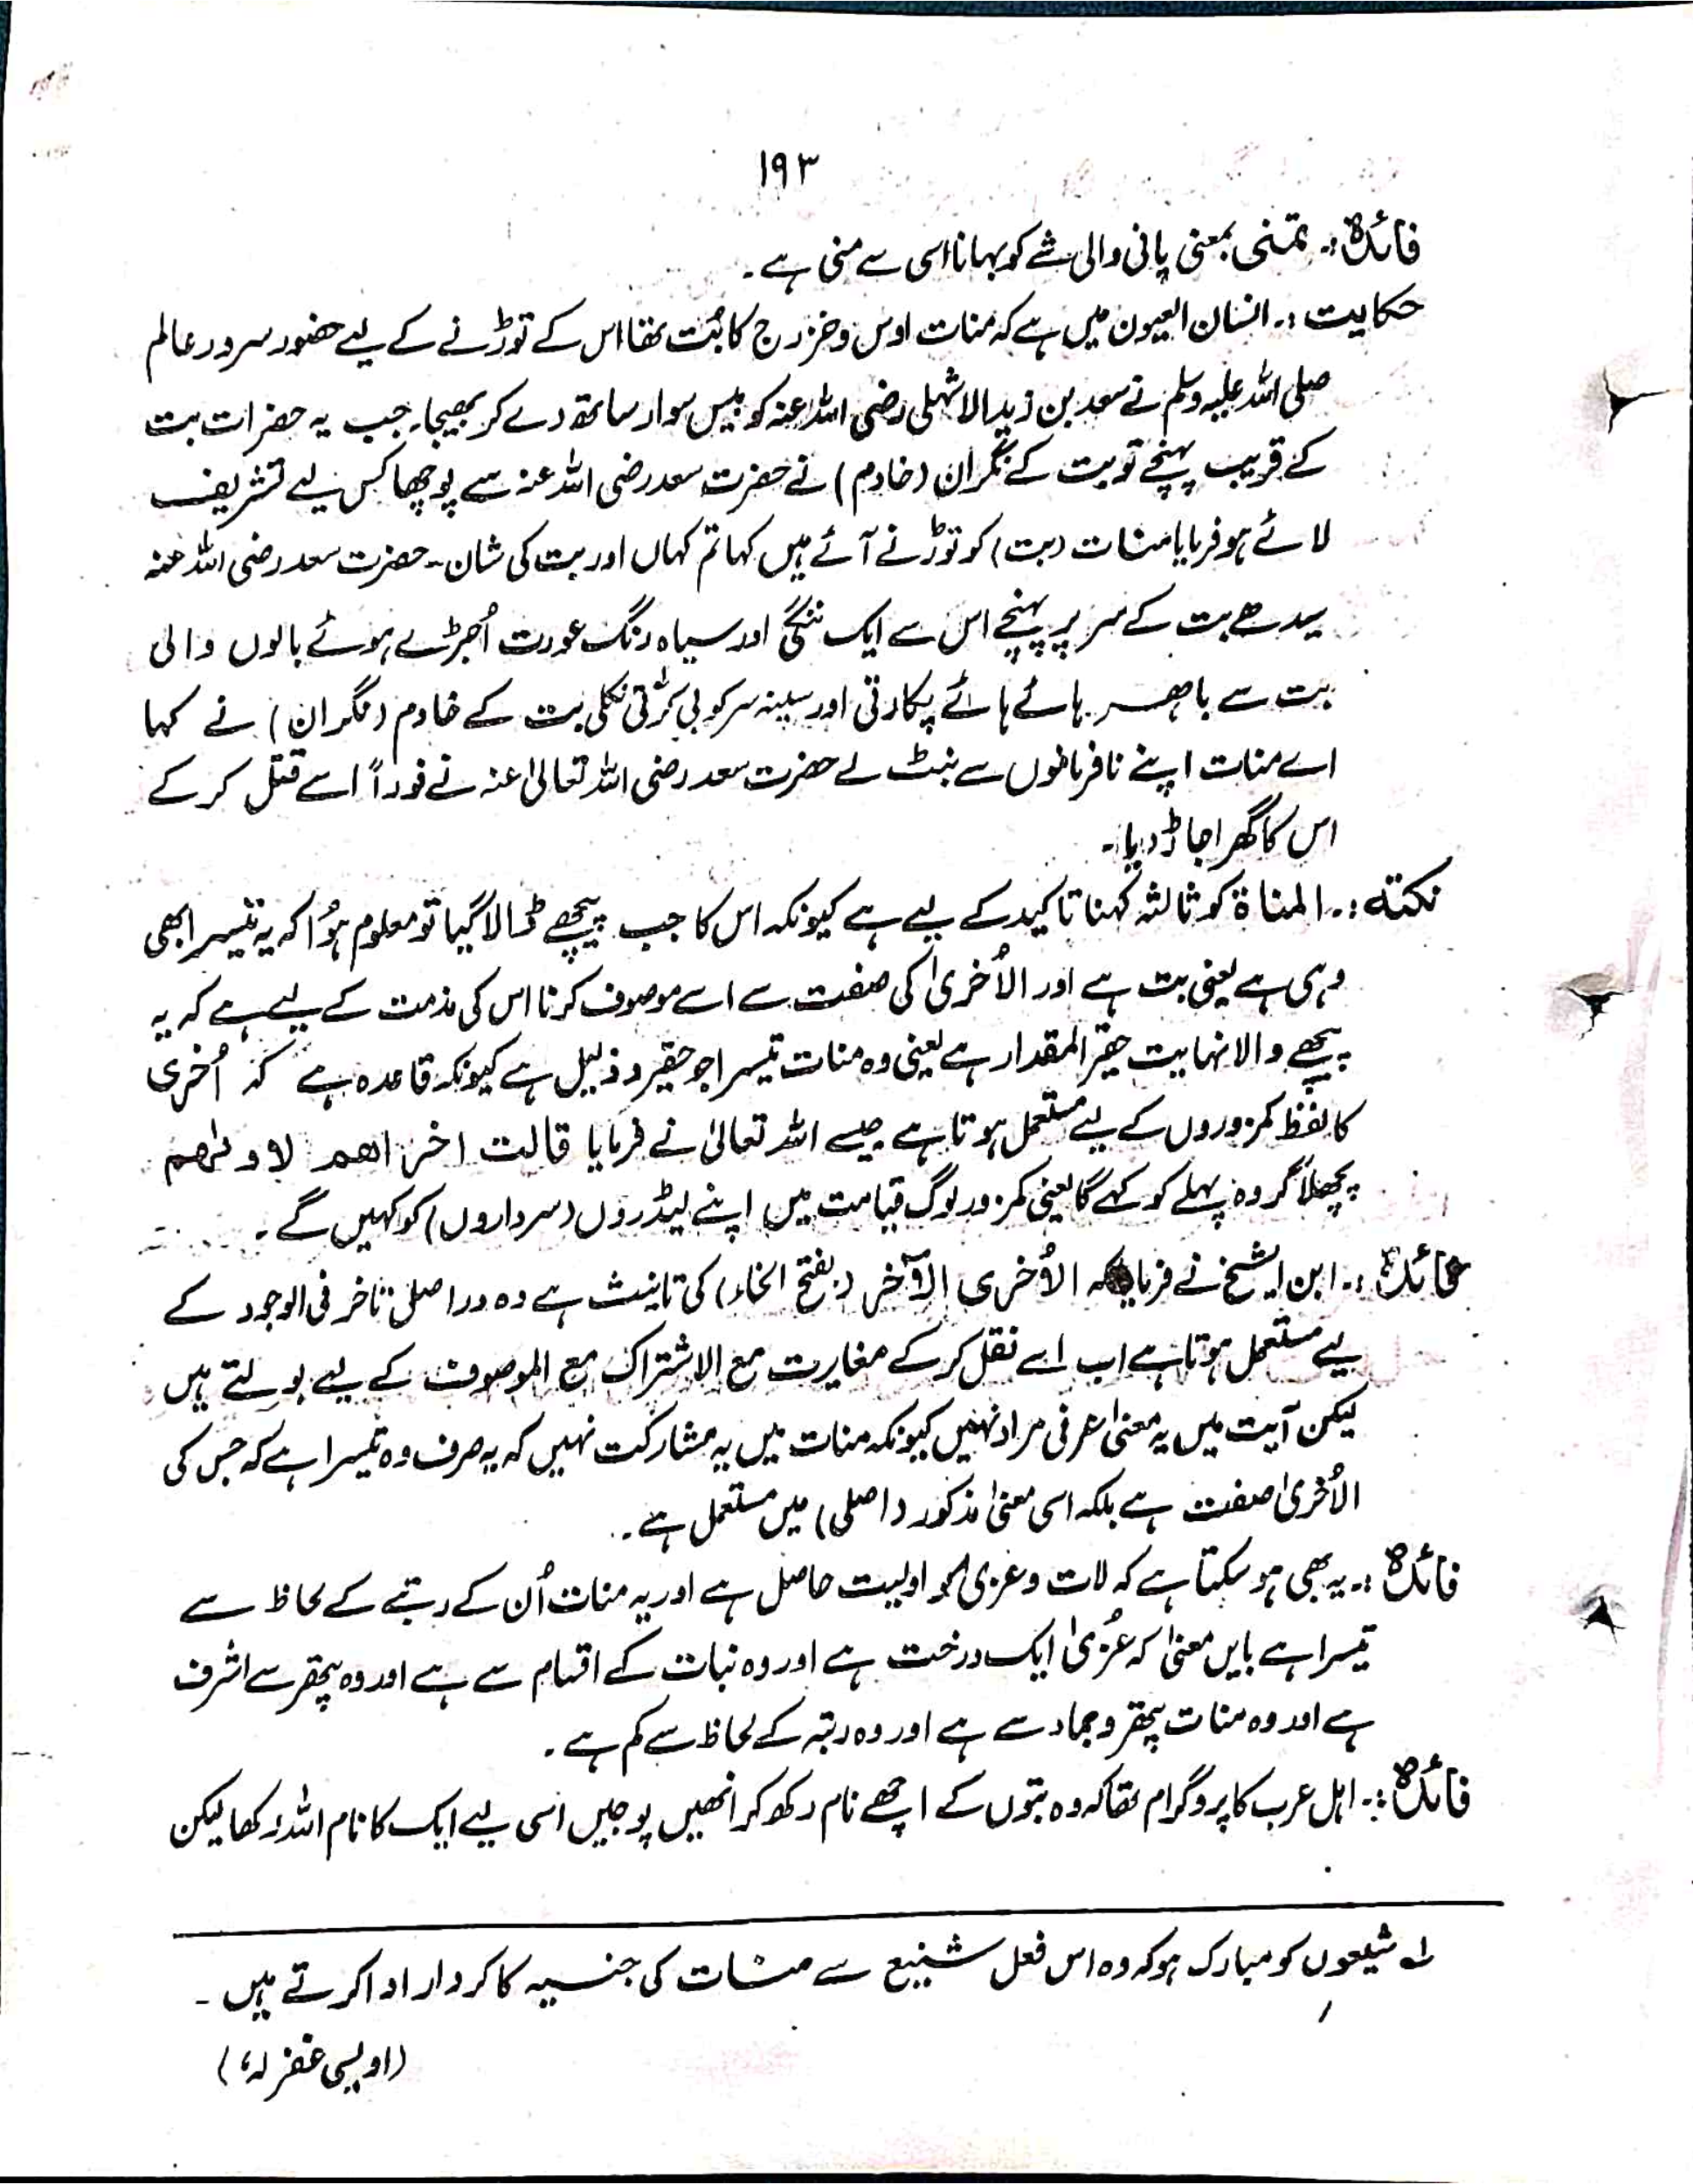 ۱۹۳
فائدہ:۔ تمنی بمعنی پانی والی شے کو بہانا اسی سے منی ہے۔
حکایت:۔ انسان العیون میں ہے کہ منات اوس و خزرج کا بُت تھا اس کے توڑنے کے لیے حضور سرور عالم
صلی اللہ علیہ وسلم نے سعد بن زید الاشہلی رضی اللہ عنہ کو بیس سوار ساتھ دے کر بھیجا۔ جب یہ حضرات بت
کے قریب پہنچے تو بت کے نگران (خادم) نے حضرت سعد رضی اللہ عنہ سے پوچھا کس لیے تشریف
لائے ہو فرمایا منات (بت) کو توڑنے آئے ہیں کہا تم کہاں اور بت کی شان۔ حضرت سعد رضی اللہ عنہ
سیدھے بت کے سر پر پہنچے اس سے ایک ننگی اور سیاہ رنگ عورت اُجڑے ہوئے بالوں والی
بت سے باھر ہائے ہائے پکارتی اور سینہ سر کوبی کرتی نکلی بت کے خادم (نگران) نے کہا
اے منات اپنے نافرمانوں سے نبٹ لے حضرت سعد رضی اللہ تعالیٰ عنہ نے فوراً اسے قتل کر کے
اس کا گھر اجاڑ دیا۔
نکتہ:۔ المناۃ کو ثالثہ کہنا تاکید کے لیے ہے کیونکہ اس کا جب پیچھے ڈالا گیا تو معلوم ہُوا کہ یہ تیسرا بھی
وہی ہے یعنی بت ہے اور الاُخریٰ کی صفت سے اسے موصوف کرنا اس کی مذمت کے لیے ہے کہ یہ
پیچھے والا نہایت حقیر المقدار ہے یعنی وہ منات تیسرا جو حقیر و ذلیل ہے کیونکہ قاعدہ ہے کہ اُخریٰ
کا لفظ کمزوروں کے لیے مستعمل ہوتا ہے جیسے اللہ تعالیٰ نے فرمایا قالت اخراھم لاولٰھم
پچھلا گروہ پہلے کو کہے گا یعنی کمزور لوگ قیامت میں اپنے لیڈروں (سرداروں) کو کہیں گے۔
فائدہ:۔ ابن الشیخ نے فرمایا کہ الاُخری الآخر (بفتح الخاء) کی تانیث ہے وہ دراصل تاخر فی الوجود کے
لیے مستعمل ہوتا ہے اب اسے نقل کر کے مغایرت مع الاشتراک مع الموصوف کے لیے بولتے ہیں
لیکن آیت میں یہ معنیٰ عرفی مراد نہیں کیونکہ منات میں یہ مشارکت نہیں کہ یہ صرف وہ تیسرا ہے کہ جس کی
الاُخریٰ صفت ہے بلکہ اسی معنیٰ مذکور (اصلی) میں مستعمل ہے۔
فائدہ:۔ یہ بھی ہو سکتا ہے کہ لات و عزیٰ کو اولیت حاصل ہے اور یہ منات اُن کے رتبے کے لحاظ سے
تیسرا ہے بایں معنیٰ کہ عُزیٰ ایک درخت ہے اور وہ نبات کے اقسام سے ہے اور وہ پتھر سے اشرف
ہے اور وہ منات پتھر و جماد سے ہے اور وہ رتبہ کے لحاظ سے کم ہے۔
فائدہ:۔ اہل عرب کا پروگرام تھا کہ وہ بتوں کے اچھے نام رکھ کر انھیں پوجیں اسی لیے ایک کا نام اللہ رکھا لیکن
لے شیعوں کو مبارک ہو کہ وہ اس فعل شنیع سے منات کی جنسیہ کا کردار ادا کرتے ہیں۔
(اویسی غفرلہٗ)